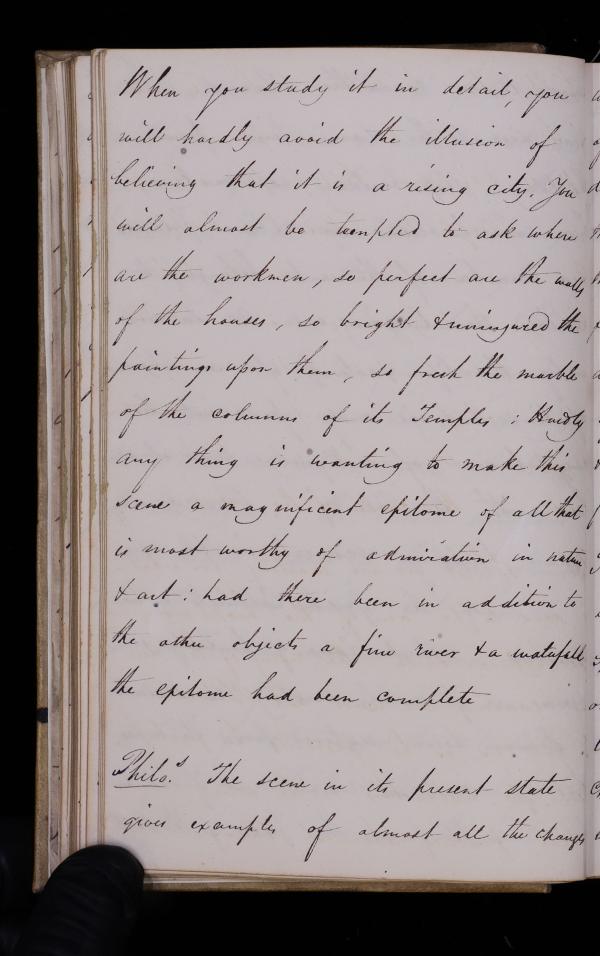 When you study it in detail, you
will hardly avoid the illusion of
believing that it is a rising city. You
will almost be tempted to ask where
are the workmen, so perfect are the walls
of the houses, so bright & uninjured the
paintings upon them, so fresh the marble
of the columns of its Temples : Hardly
any thing is wanting to make this
scene a magnificent epitome of all that
is most worthy of admiration in nature
& art : had there been in addition to
the other objects a fine river & a waterfall
the epitome had been complete
Philo.s The scene in its present state
gives examples of almost all the changes